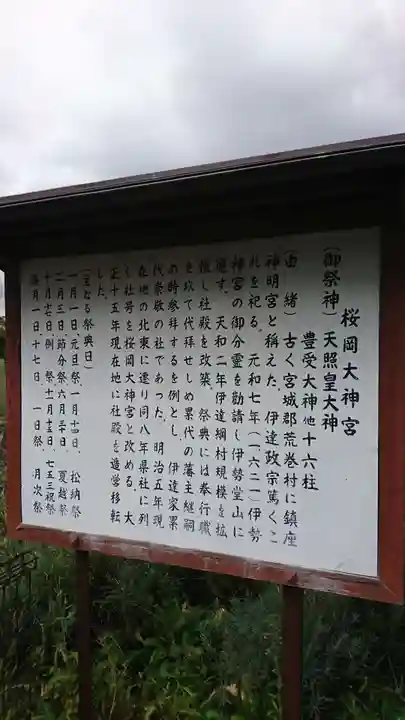 桜岡大神宮
(御祭神) 天照皇大神
豊受大神他十六柱
(由緒) 古く宮城郡荒巻村に鎮座
神明宮と稱えた。伊達政宗篤くこ
れを祀る。元和七年(一六二一)伊勢
神宮の御分霊を勧請し伊勢堂山に
遷す。天和二年伊達綱村規模を拡
張し社殿を改築。祭典には奉行職
を玖て代拝せしめ累代の藩主継嗣
の時参拝するを例とし、伊達家累
代崇敬の社であった。明治五年現
在地の北東に遷り同八年県社に列
し社号を桜岡大神宮と改める。大
正十五年現在地に社殿を造営移転
した。
(主なる祭典日)
一月一日、元旦祭、一月十四日、松納祭
二月三日、節分祭、六月三十日、夏越祭
十月十七日、例祭、十一月十五日、七五三祝祭
毎月一日、十七日、一日祭、月次祭